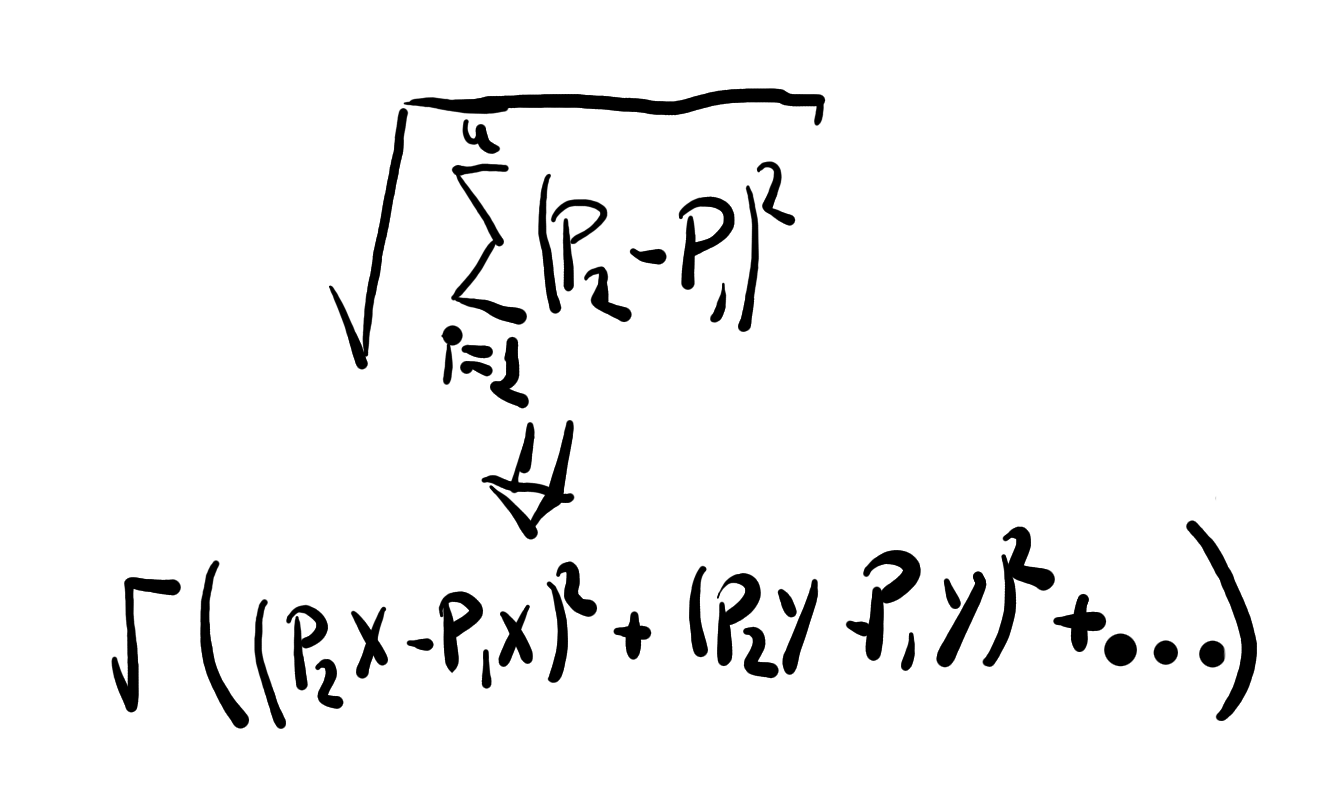 √(∑ᵢ₌₁ⁿ (P₂-P₁)²)
⇓
√((P₂x-P₁x)²+(P₂y-P₁y)²+...)